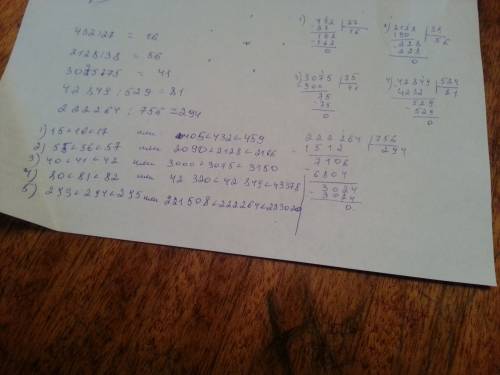 432:27 = 16
2128:38 = 56
3075:75 = 41
42849:529 = 81
222264:756 = 294
1) 15<16<17 или 405<432<459
2) 55<56<57 или 2090<2128<2166
3) 40<41<42 или 3000<3075<3150
4) 80<81<82 или 42320<42849<43378
5) 293<294<295 или 221508<222264<223020
1) 432 27
27 16
162
162
0
2) 2128 38
190 56
228
228
0
3) 3075 75
300 41
75
75
0
4) 42849 529
4232 81
529
529
0
222264 756
1512 294
7106
6804
3024
3024
0